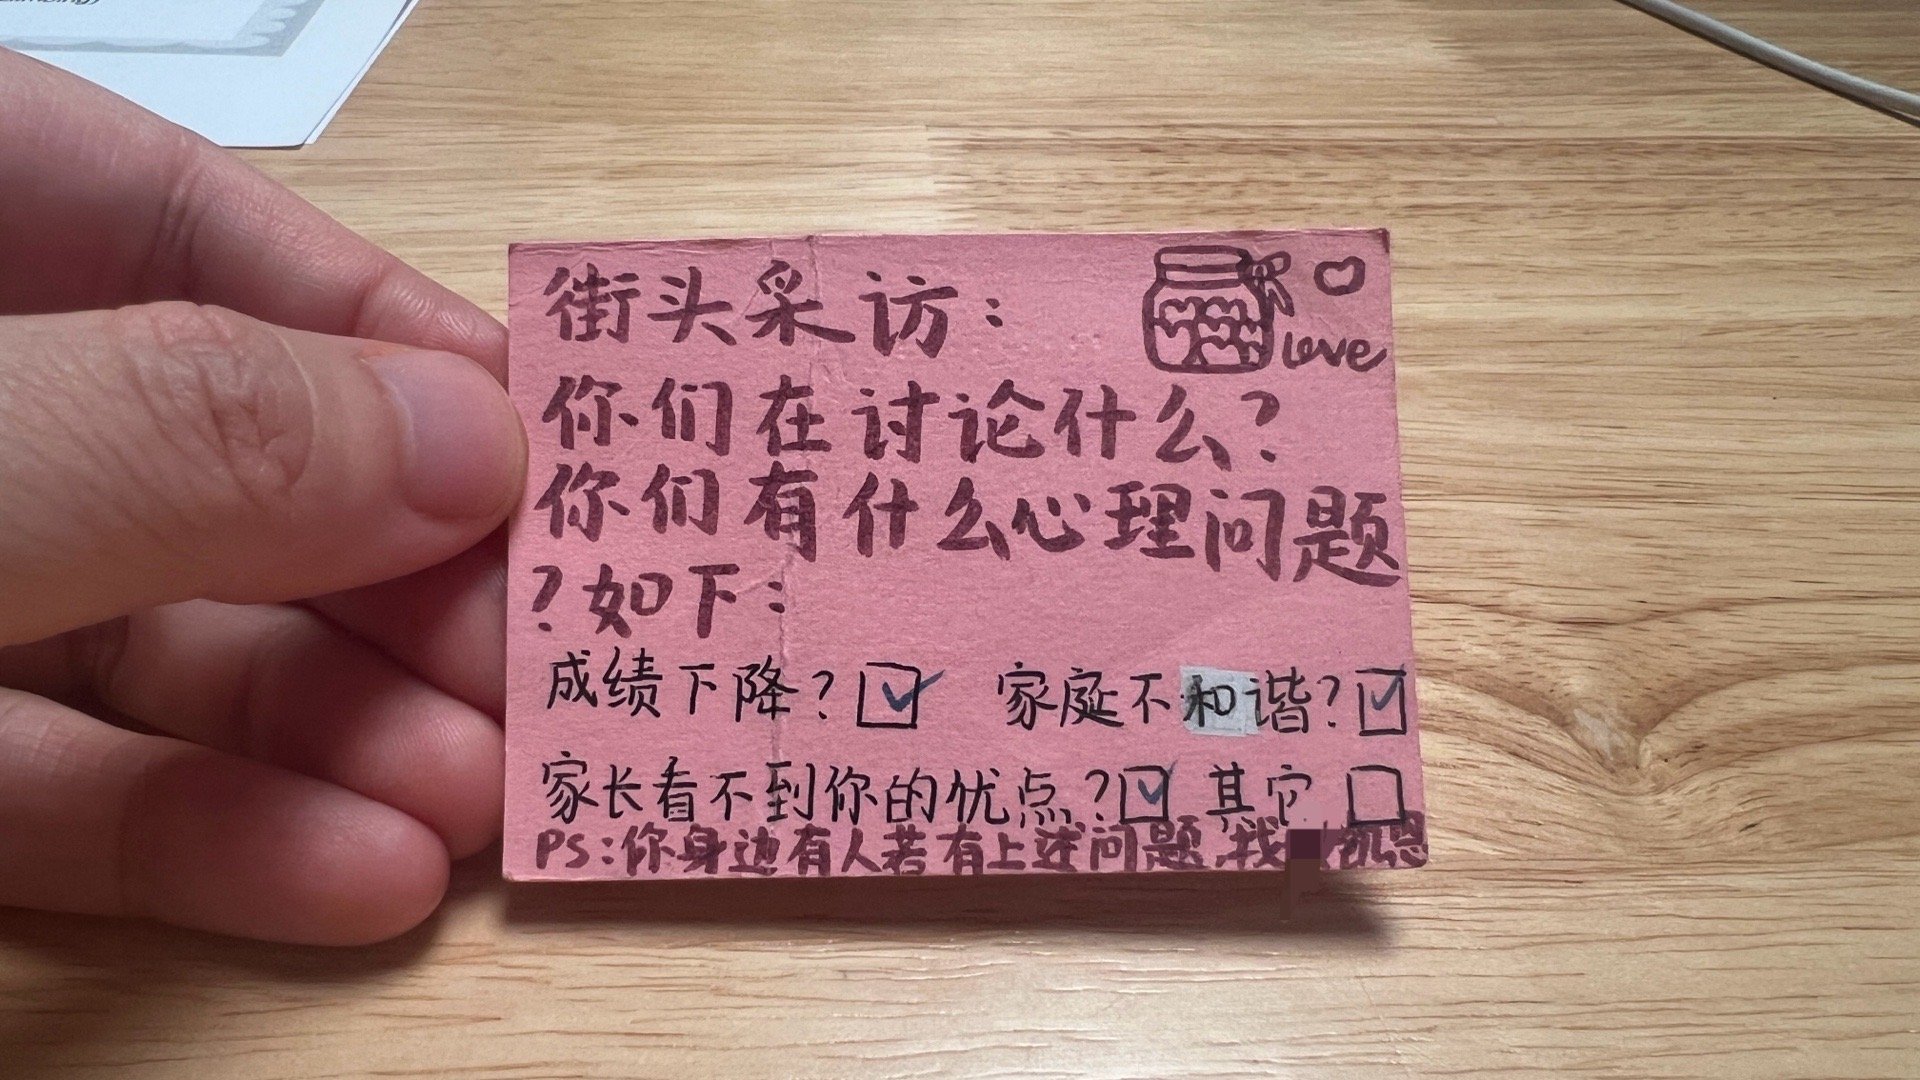 街头采访：
love
你们在讨论什么？
你们有什么心理问题
？如下：
成绩下降？ 家庭不和谐？
家长看不到你的优点？ 其它
PS：你身边有人若有上述问题，我